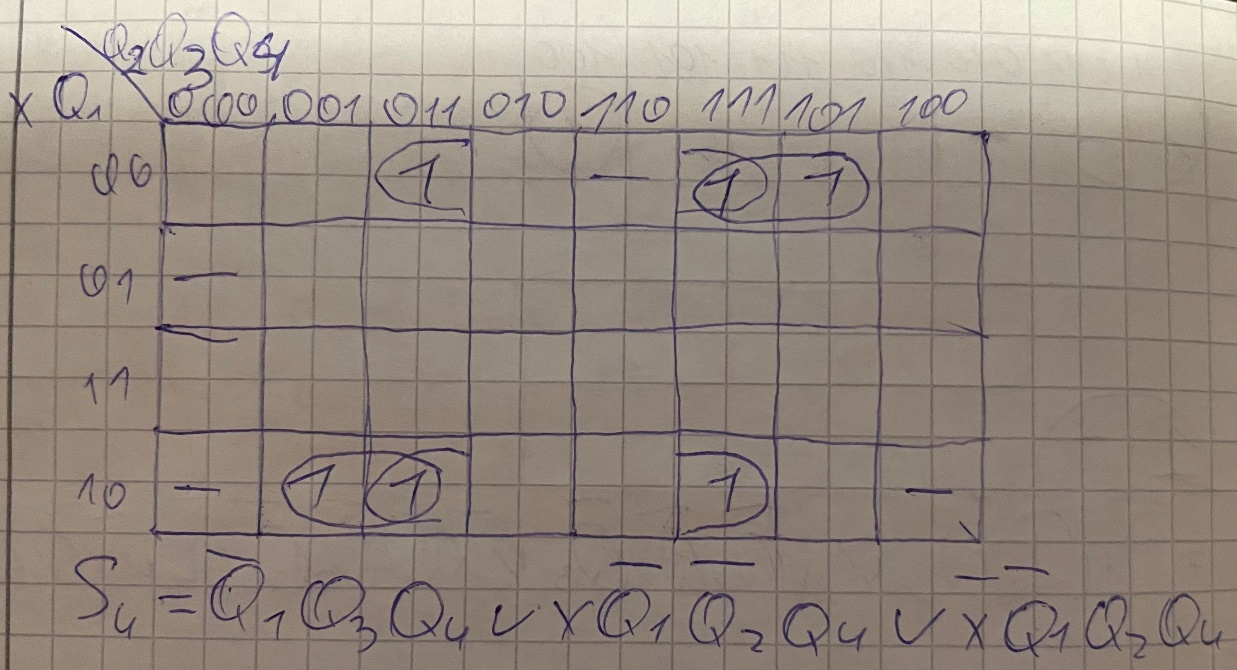 Q₂Q₃Q₄
x Q₁ 000 001 011 010 110 111 101 100
00 1 — 1 1
01 —
11
10 — 1 1 1 —
S₄ = Q̅₁ Q₃ Q₄ ∨ x Q̅₁ Q̅₂ Q₄ ∨ x̅ Q̅₁ Q₂ Q₄